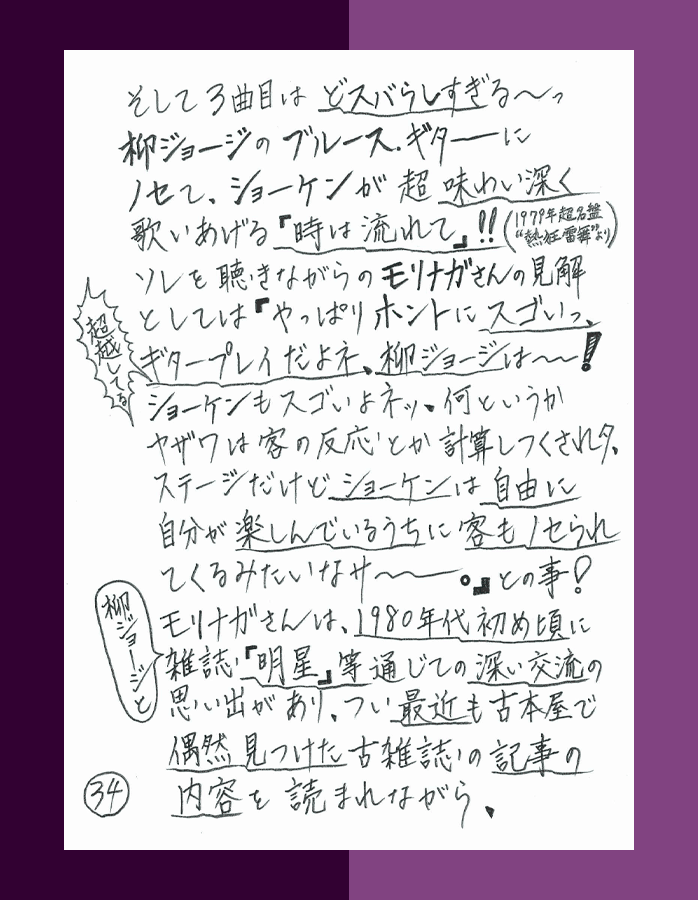 そして3曲目は どスバらしすぎる〜っ
柳ジョージの ブルース・ギターに
ノセて、ショーケンが 超 味わい深く
歌いあげる『時は 流れて』!!(1979年超名盤
“熱狂雷舞”より)
ソレを 聴きながらの モリナガさんの見解
としては『やっぱり ホントに スゴいっ、
超越してる
ギタープレイだよネ、柳ジョージは〜〜!
ショーケンも スゴいよネッ、何というか
ヤザワは 客の 反応とか 計算しつくされタ、
ステージだけど ショーケンは 自由に
自分が 楽しんでいるうちに 客も ノセられ
てくるみたいなサ〜〜。』との事!
柳ジョージと
モリナガさんは、1980年代 初め頃に
雑誌『明星』等 通じての 深い 交流の
思い出が あり、つい 最近も 古本屋で
偶然 見つけた 古雑誌の 記事の
内容を 読まれながら、
34